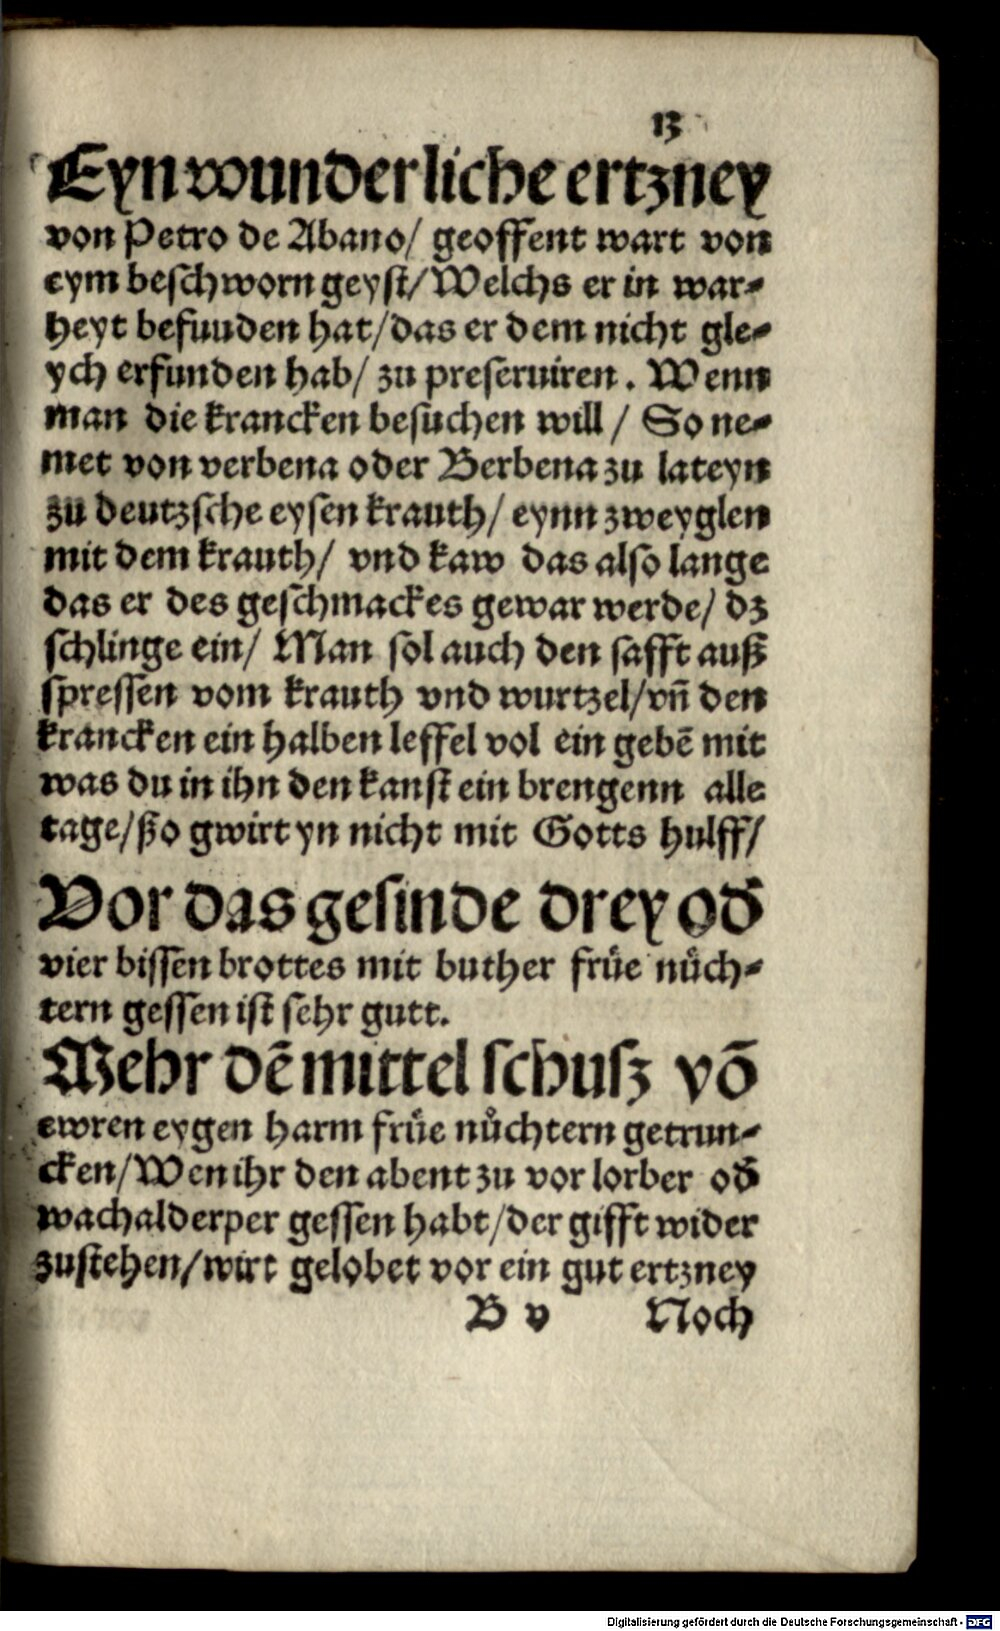 13
Eyn wunderliche ertzney
von Petro de Abano/ geoffent wart von
eym beschworn geyst/ Welchs er in war⸗
heyt befunden hat/ das er dem nicht gle⸗
ych erfunden hab/ zu preseruiren. Wenn
man die krancken besuchen will/ So ne⸗
met von verbena oder Berbena zu lateyn
zu deutzsche eysen krauth/ eynn zweyglen
mit dem krauth/ vnd kaw das also lange
das er des geschmackes gewar werde/ dz
schlinge ein/ Man sol auch den safft auß
spressen vom krauth vnd wurtzel/ vñ den
krancken ein halben leffel vol ein gebẽ mit
was du in ihn den kanst ein brengenn alle
tage/ ßo gwirt yn nicht mit Gotts hulff/
Vor das gesinde drey od̃
vier bissen brottes mit buther frůe nůch⸗
tern gessen ist sehr gutt.
Mehr dẽ mittel schusz võ
ewren eygen harm frůe nůchtern getrun⸗
cken/ Wen ihr den abent zu vor lorber od̃
wachalderper gessen habt/ der gifft wider
zustehen/ wirt gelobet vor ein gut ertzney
B v Noch
Digitalisierung gefördert durch die Deutsche Forschungsgemeinschaft - DFG